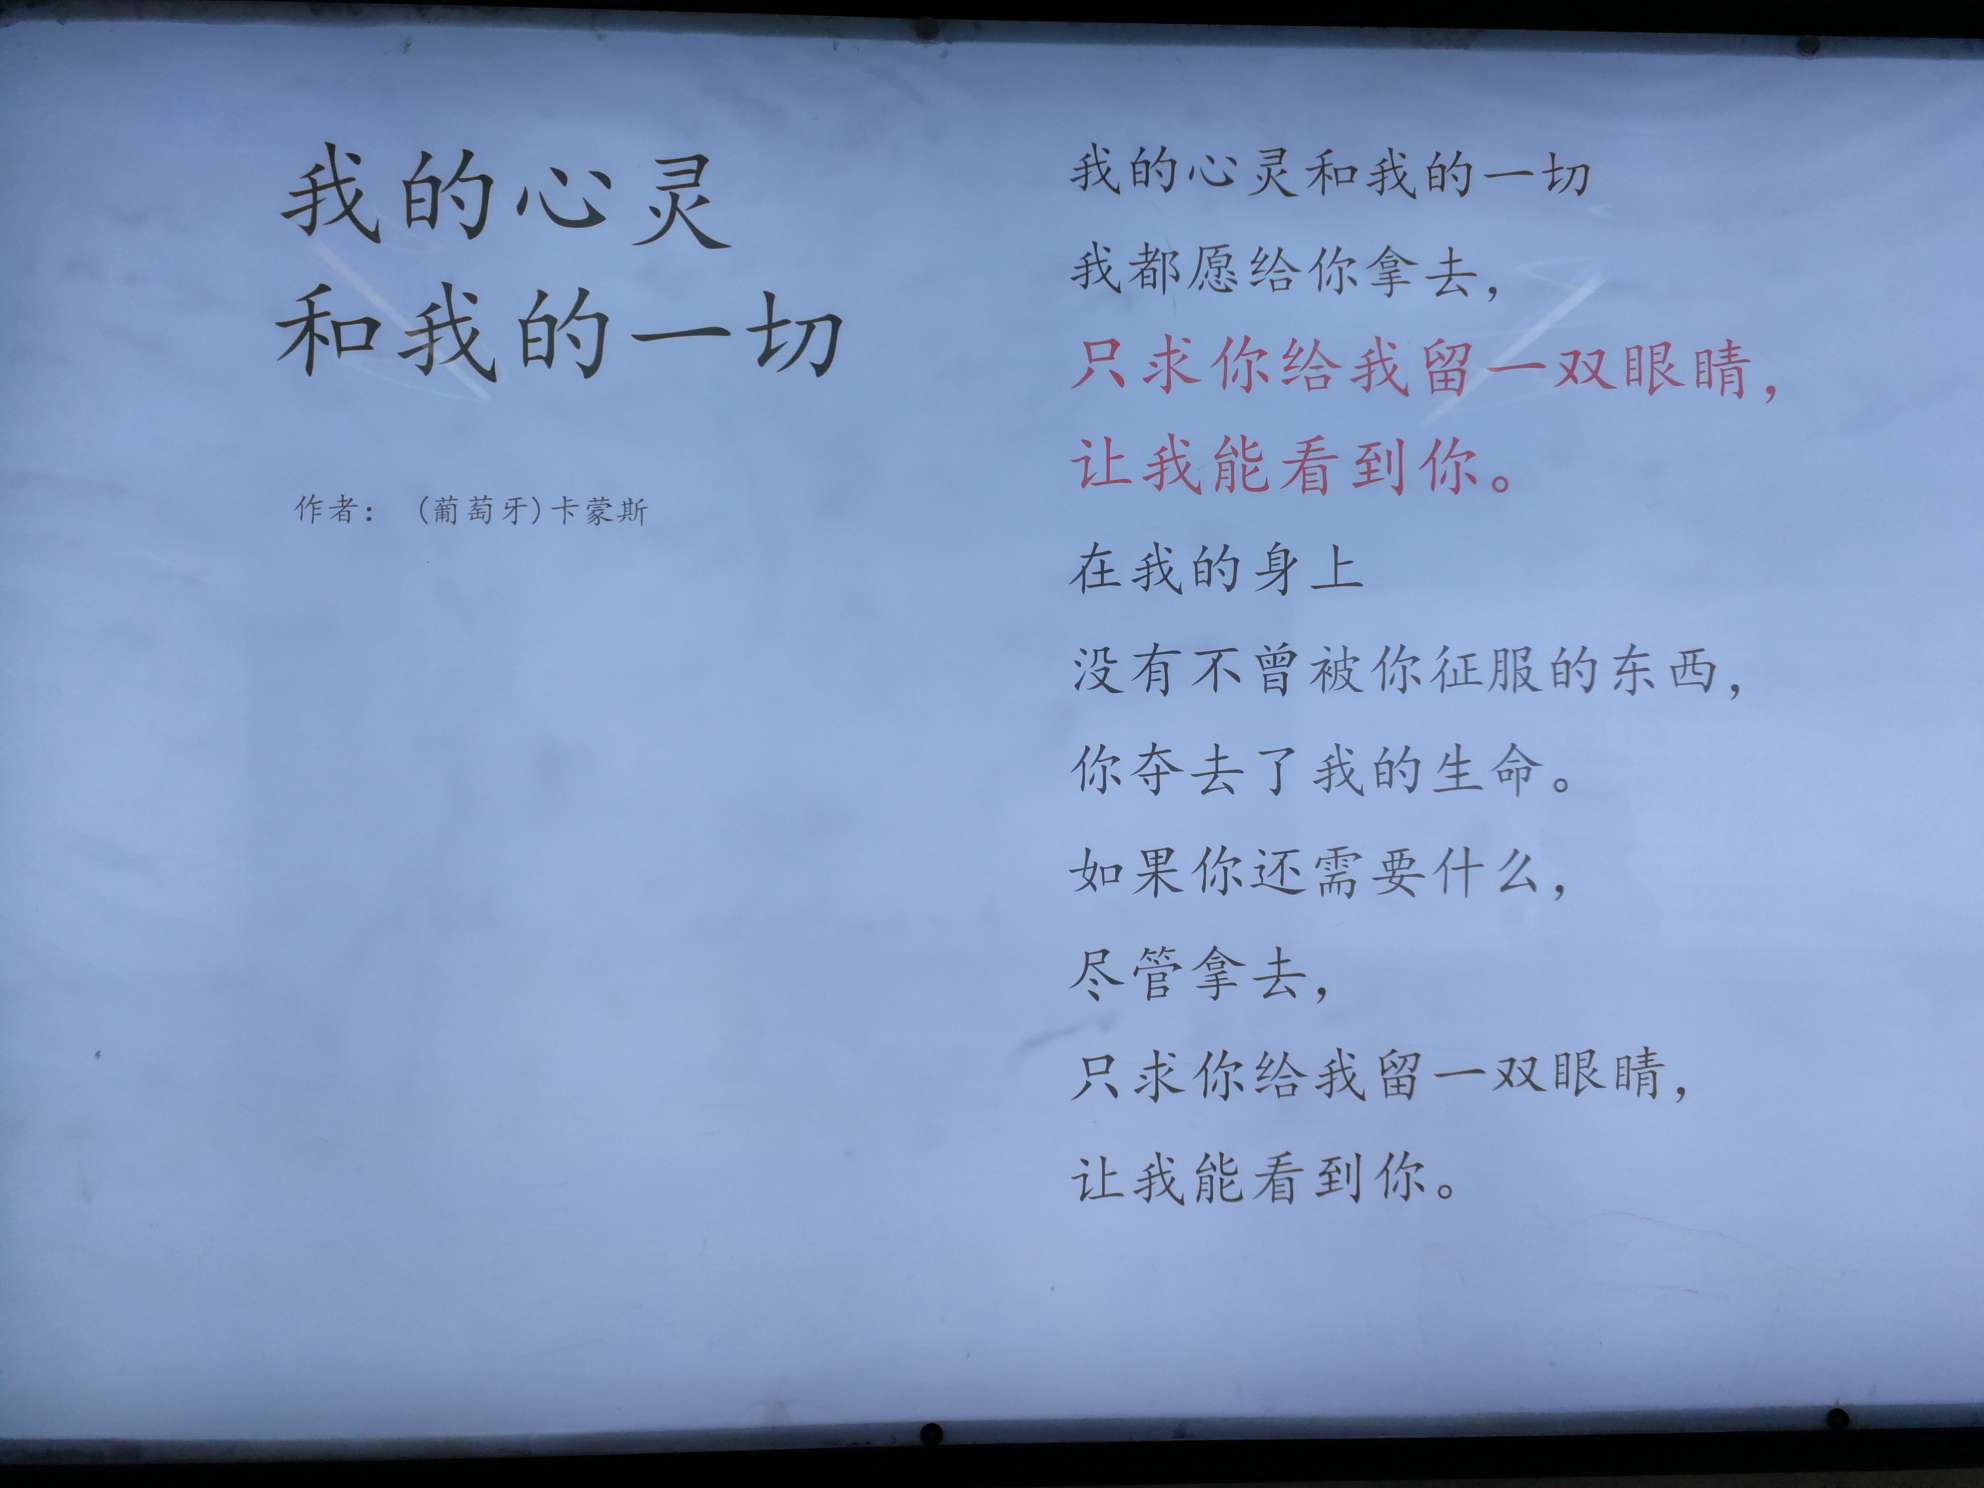 我的心灵
和我的一切
作者： (葡萄牙)卡蒙斯
我的心灵和我的一切
我都愿给你拿去，
只求你给我留一双眼睛，
让我能看到你。
在我的身上
没有不曾被你征服的东西，
你夺去了我的生命。
如果你还需要什么，
尽管拿去，
只求你给我留一双眼睛，
让我能看到你。